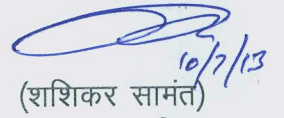 10/7/13
(शशिकर सामंत)